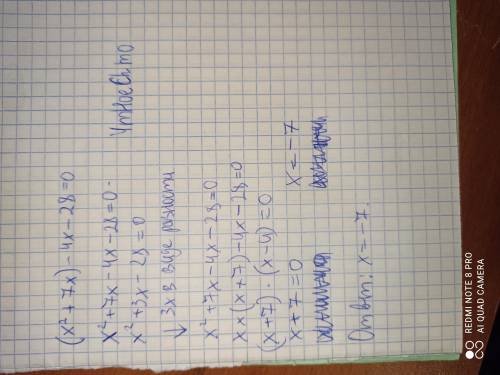 (x²+7x)-4x-28=0
x²+7x-4x-28=0.
x²+3x-28=0
↓ 3x в виде разности
x²+7x-4x-28=0
x×(x+7)-4x-28=0
(x+7)·(x-4)=0
x+7=0 x=-7
Ответ: x=-7.
REDMI NOTE 8 PRO
AI QUAD CAMERA